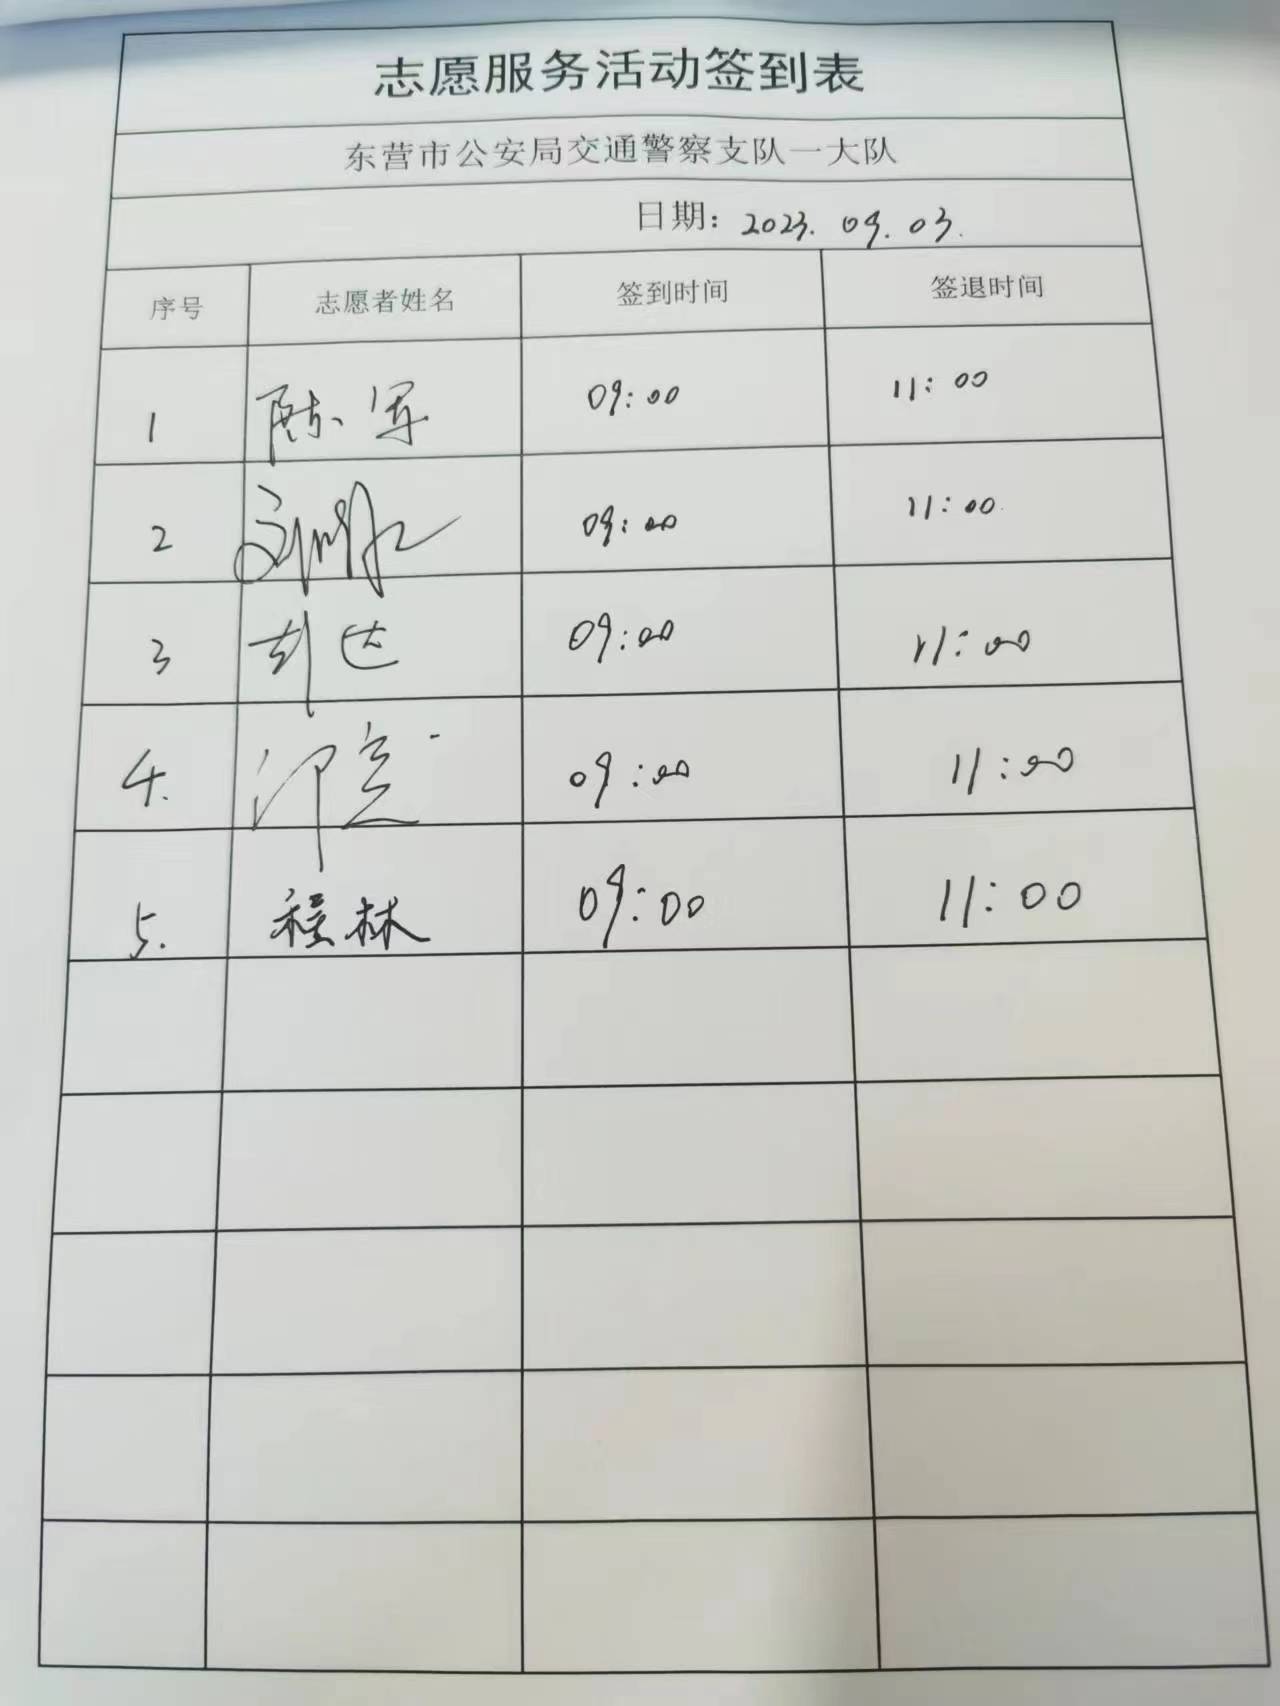 志愿服务活动签到表
东营市公安局交通警察支队一大队
日期：2023.09.03.
序号 志愿者姓名 签到时间 签退时间
1 陈军 09:00 11:00
2 09:00 11:00
3 刘达 09:00 11:00
4. 09:00 11:00
5. 程林 09:00 11:00